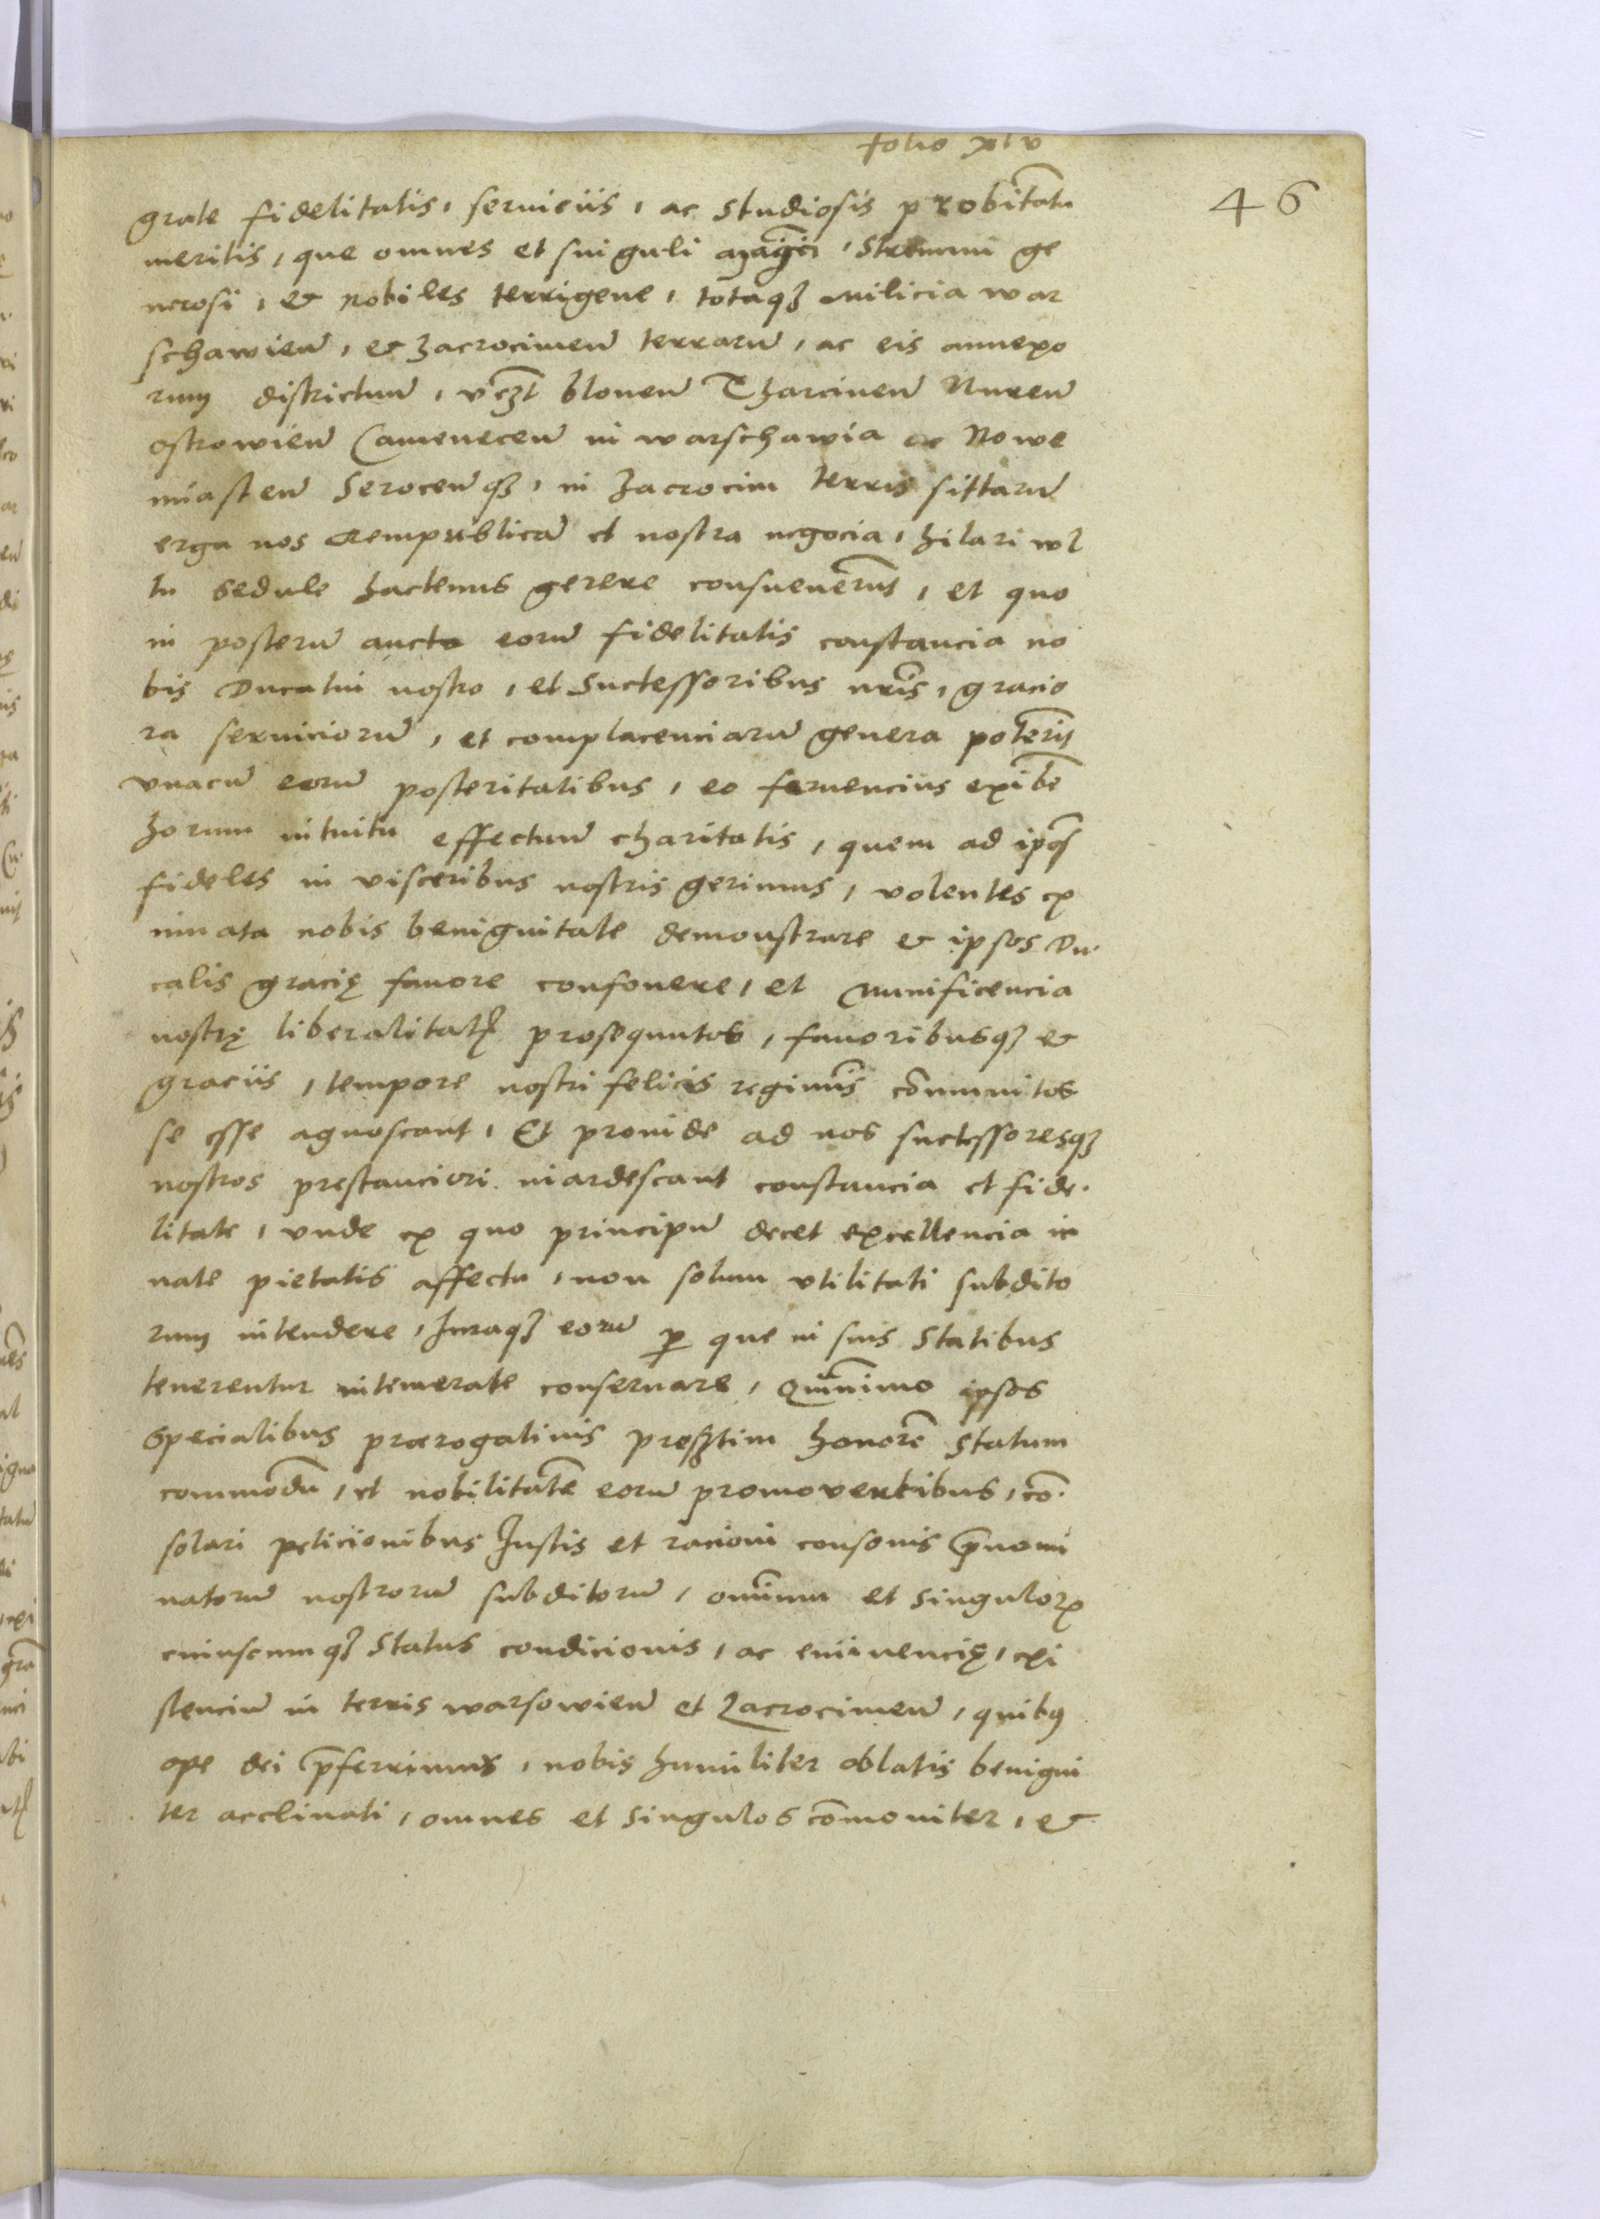 folio xlv
46
grate fidelitatis, seruiciis, ac studiosis probitatũ
meritis, que omnes et singuli magci, strenui ge
nerosi, & nobiles terrigene, totaqꝫ milicia war
schawien̄, & zacrocimen̄ terrarū, ac eis annexo
rum districtuū, vcꝫt blonen̄ Tharcinen̄ Nuren̄
ostrowien̄ Camenecen̄ in warschawia ac Nowe
miasten̄ Serocen̄qꝫ, in zacrocim terris sittarū
erga nos Rempublicā et nostra negocia, hilari wl
tu sedule hactenus gerere consueuerūt, et quo
in posterū aucta eorū fidelitatis constancia no
bis Ducatui nostro, et Successoribus nr̃is, gracio
ra seruiciorū, et complacenciarū genera poterīt
vnacū eorū posteritatibus, eo feruencius exibē
horum intuitu effectuū charitatis, quem ad ipōs
fideles in visceribus nostris gerimus, volentes ex
innata nobis benignitate demonstrare & ipsos Du.
calis gracię fauore confouere, et munificencia
nostrę liberalitatꝭ prosequutos, fauoribusqꝫ &
graciis, tempore nostri felicis regimīs cōmunitos
se esse agnoscant, Et prouide ad nos successoresqꝫ
nostros prestanciori inardescant constancia et fide.
litate, vnde ex quo principū decet excellencia in
nate pietatis affectu, non solum vtilitati subdito
rum intendere, Iuraqꝫ eorū ꝑ que in suis statibus
tenerentur intemerate conseruare, Quīnimo ipsos
specialibus prærogatiuis presʒtim honorē statum
commodū, et nobilitatē eorū promouentibus, cō.
solari peticionibus Iustis et racioni consonis p̄nomi
natorū nostrorū subditorū, omīum et singuloꝝ
cuiuscumqꝫ status condicionis, ac eminencię, exi
stenciū in terris warsowien̄ et Zacrocimen̄, quibꝰ
ope dei p̄ferrimus, nobis humiliter oblatis benigni
ter acclinati, omnes et singulos cōmoniter, &